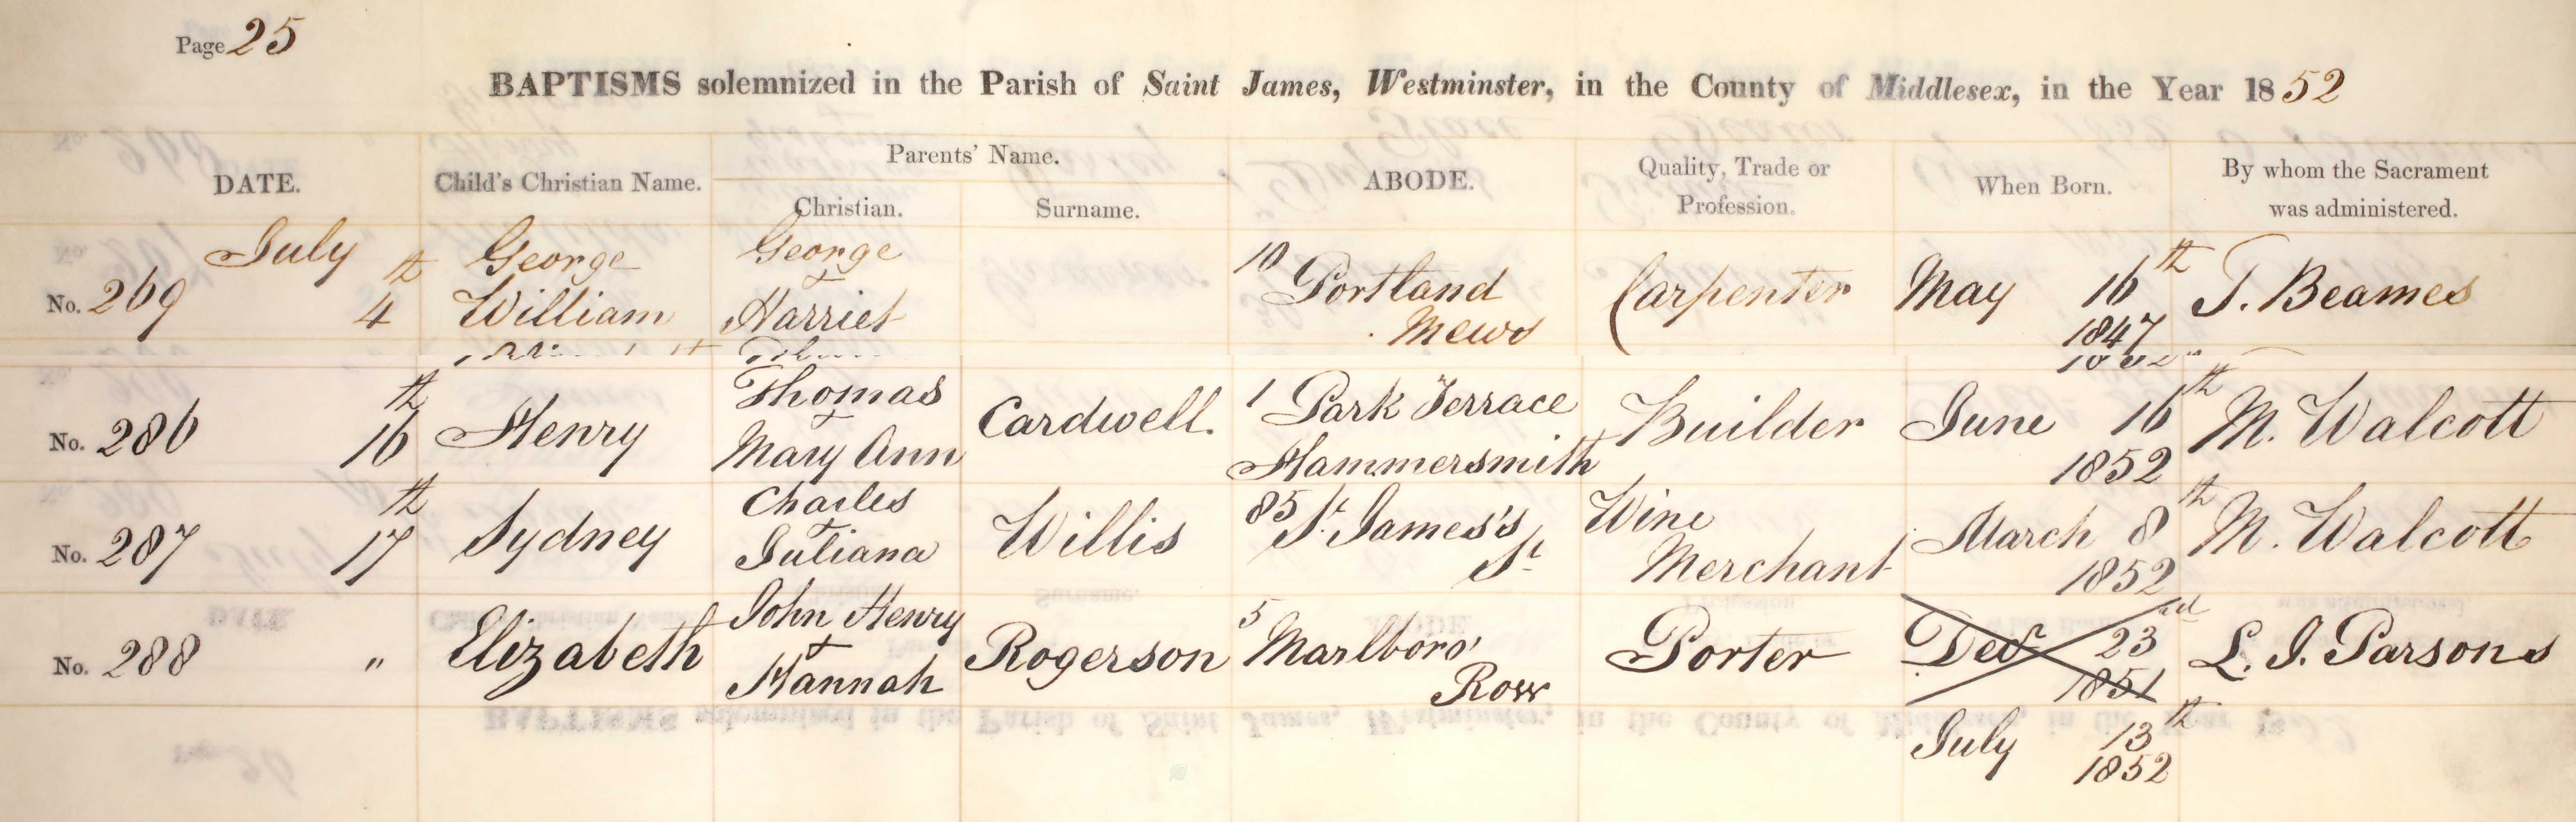 Page 25
BAPTISMS solemnized in the Parish of Saint James, Westminster, in the County of Middlesex, in the Year 1852
DATE. Child's Christian Name. Parents' Name. ABODE. Quality, Trade or Profession. When Born. By whom the Sacrament was administered.
Christian. Surname.
No. 269 July 4th George William George + Harriet 10 Portland Mews Carpenter May 16th 1847 T. Beames
No. 286 16th Henry Thomas + Mary Ann Cardwell. 1 Park Terrace Hammersmith Builder June 16th 1852 M. Walcott
No. 287 17th Sydney Charles + Juliana Willis 85 St. James's St Wine Merchant March 8th 1852 M. Walcott
No. 288 " Elizabeth John Henry + Hannah Rogerson 5 Marlboro' Row Porter Dec 23rd 1851 L. J. Parsons
July 13th 1852